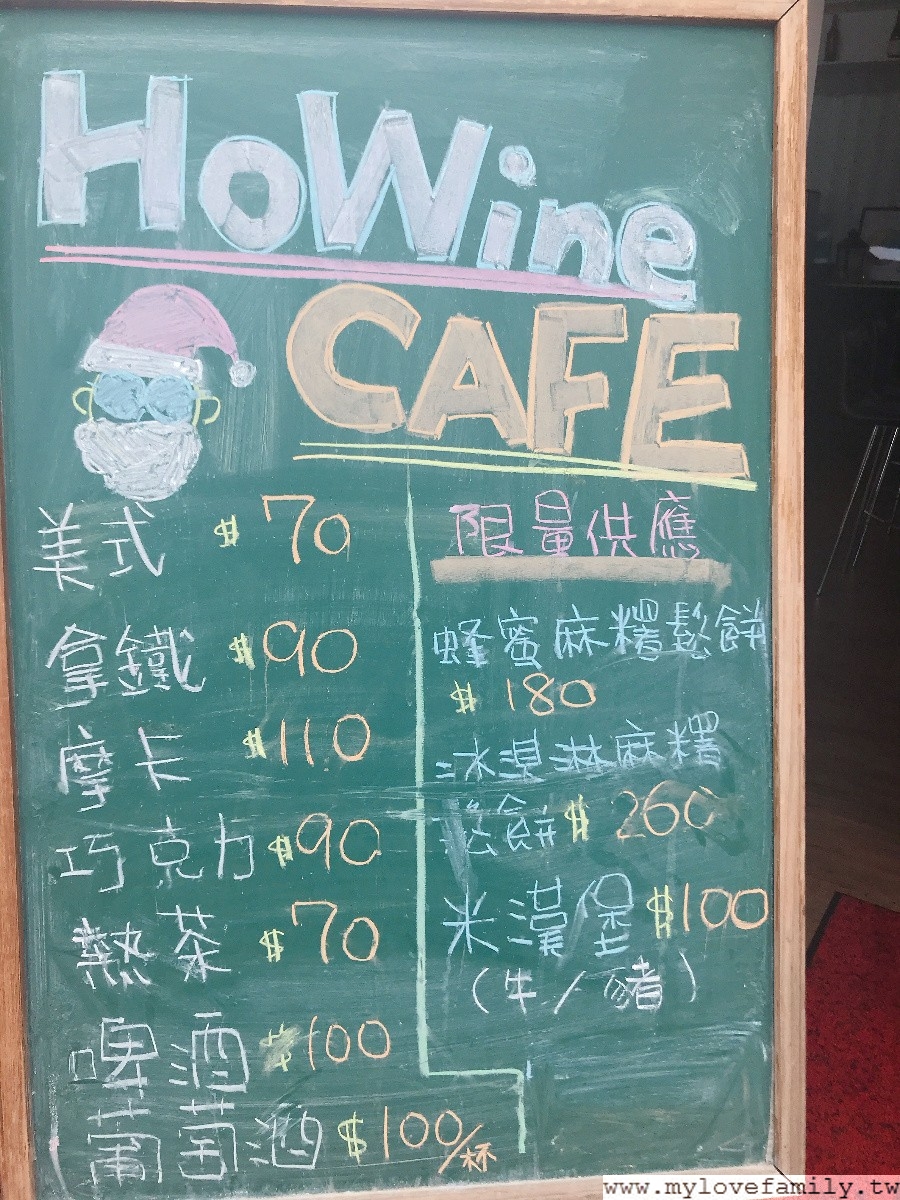 HoWine
CAFE
美式 $70
拿鐵 $90
摩卡 $110
巧克力 $90
熱茶 $70
啤酒 $100
葡萄酒 $100/杯
限量供應
蜂蜜麻糬鬆餅
$180
冰淇淋麻糬
鬆餅 $260
米漢堡 $100
(牛/豬)
www.mylovefamily.tw